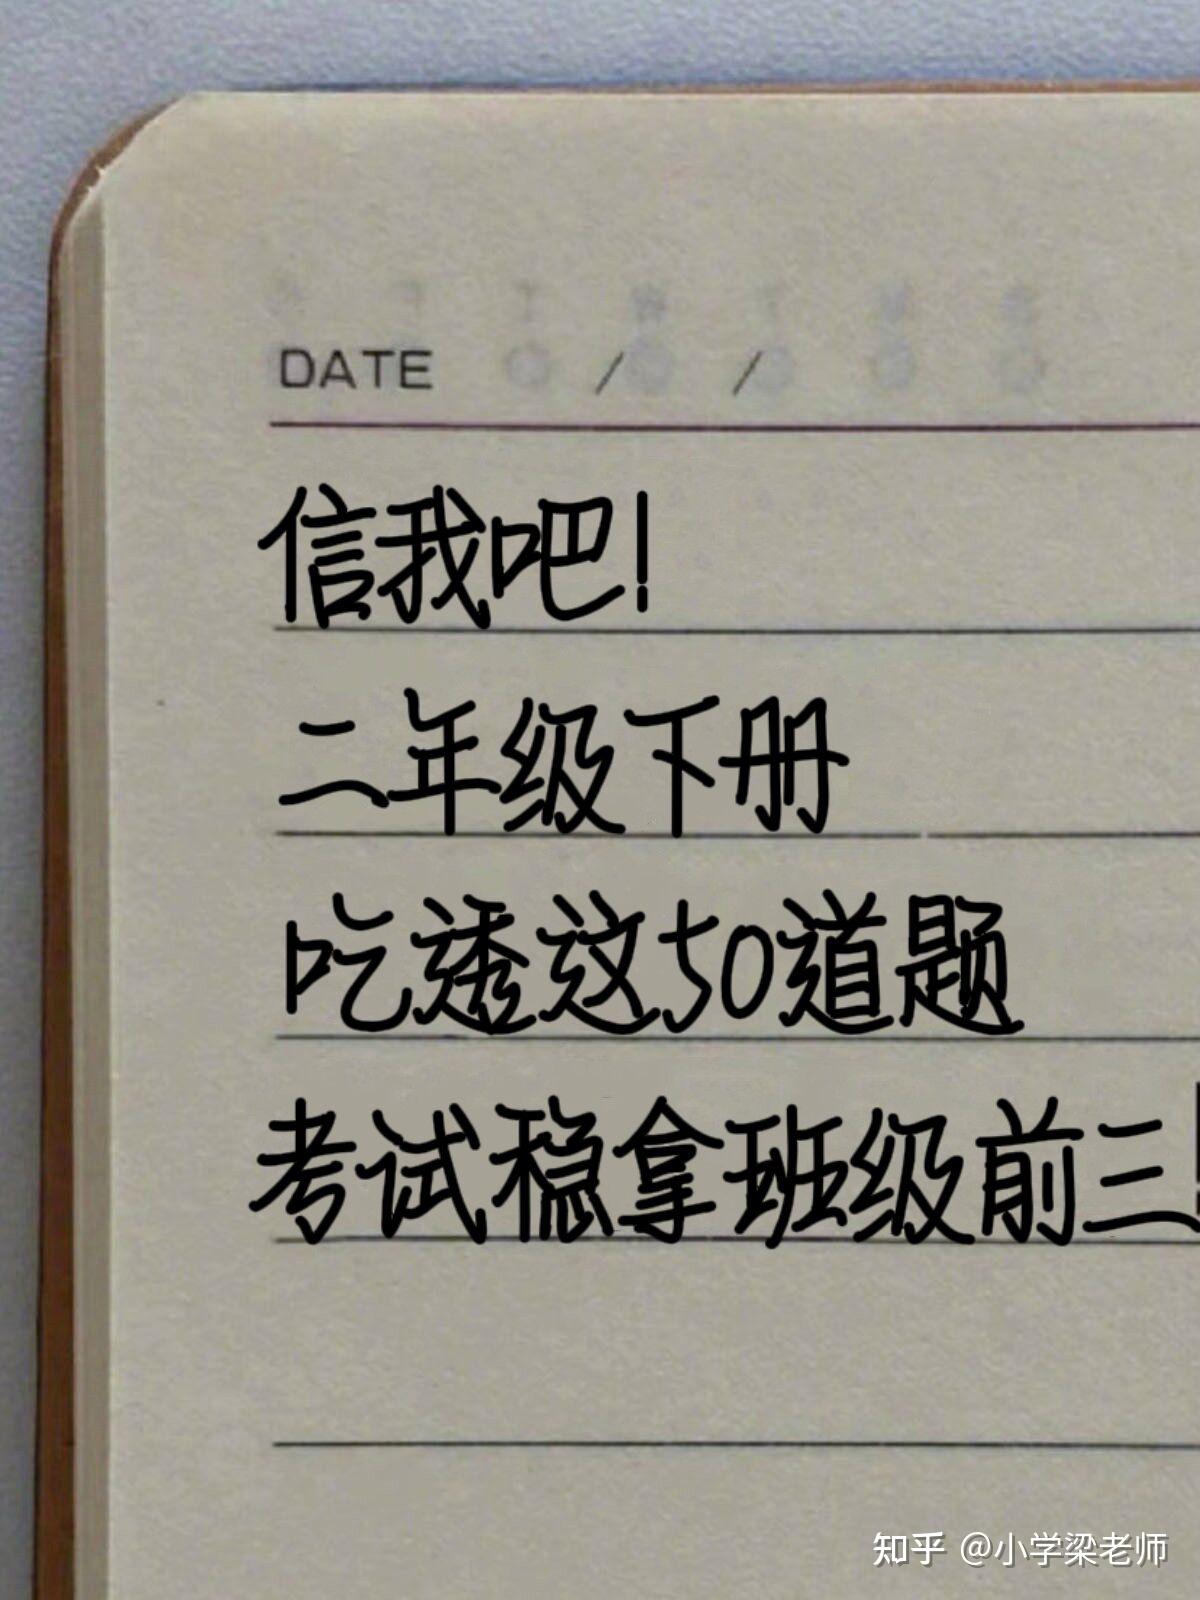 DATE / /
信我吧!
二年级下册
吃透这50道题
考试稳拿班级前三!
知乎 @小学梁老师